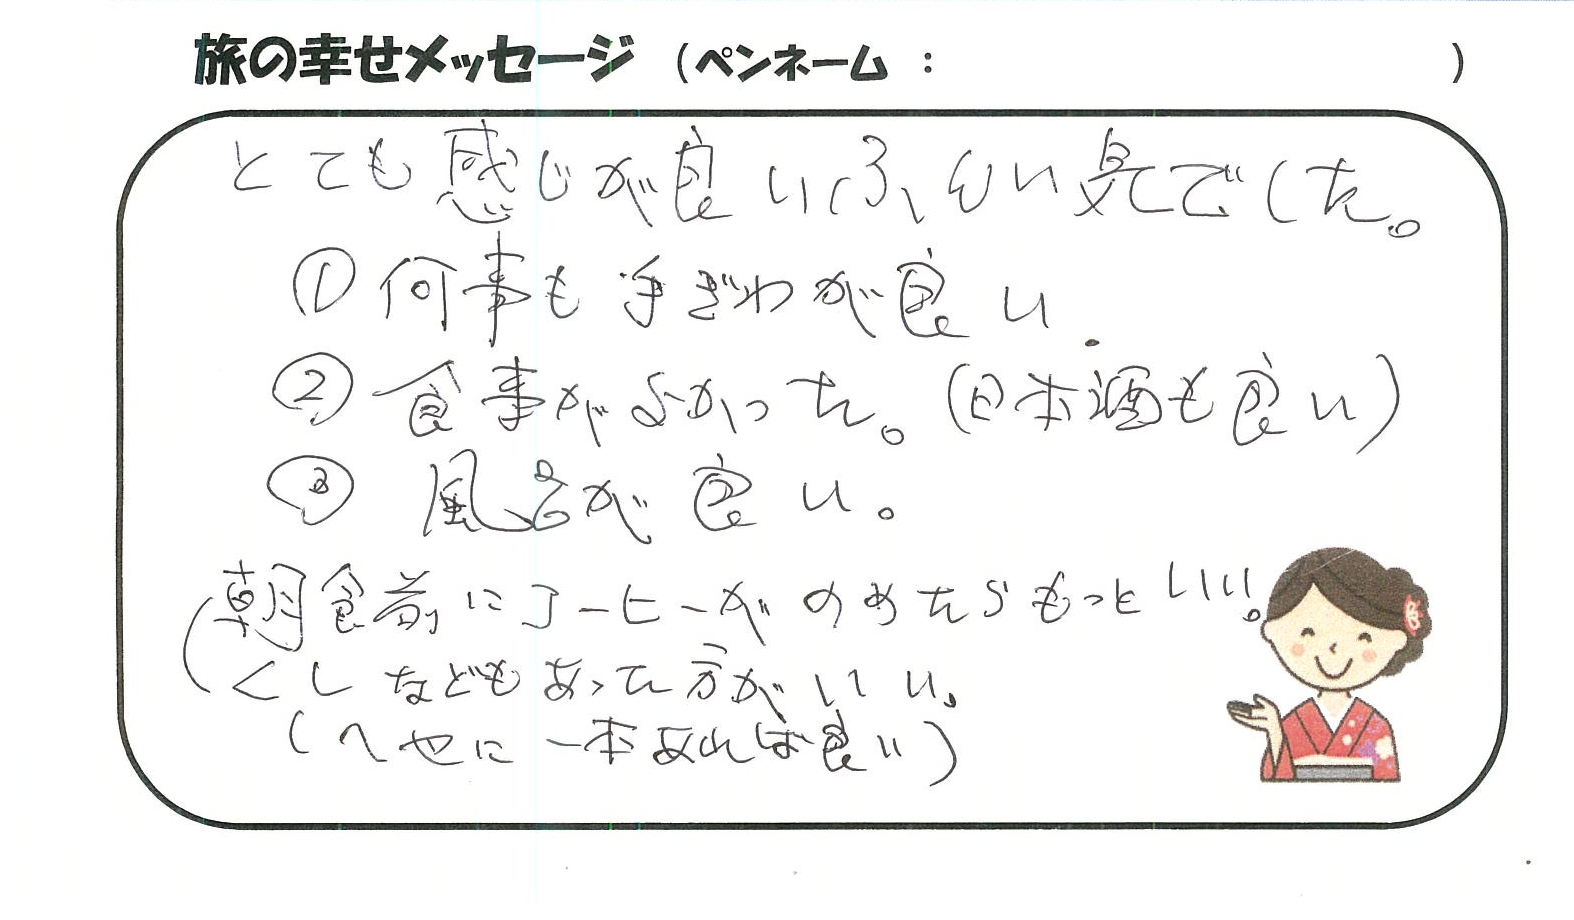 旅の幸せメッセージ (ペンネーム : )
とても感じが良いふんい気でした。
① 何事も手ぎわが良い.
② 食事がよかった。(日本酒も良い)
③ 風呂が良い。
(朝食前にコーヒーがのめたらもっといい。
くしなどもあった方がいい。
(へやに一本あれば良い)